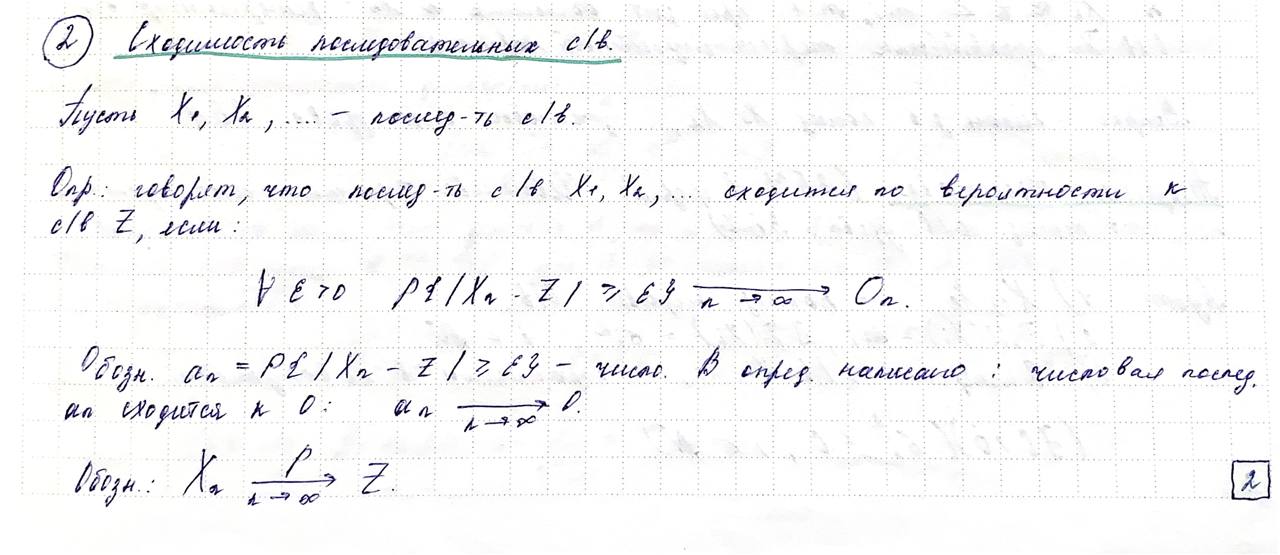 ② Сходимость последовательных с/в.
Пусть X₁, X₂, ... – послед-ть с/в.
Опр.: говорят, что послед-ть с/в X₁, X₂, ... сходится по вероятности к
с/в Z, если:
∀ ε > 0 P{|Xₙ - Z| ≥ ε} ⟶ (n → ∞) 0ₙ.
Обозн. aₙ = P{|Xₙ - Z| ≥ ε} – число. В опред. написано: числовая послед.
aₙ сходится к 0: aₙ ⟶ (n → ∞) 0.
Обозн.: Xₙ ⟶ᴾ (n → ∞) Z.
2